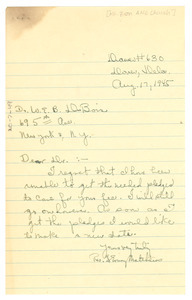 Dover, Del.
Aug. 17, 1945
Dr. W. E. B. DuBois
69 5th Ave
New York 3, N.Y.
Dear Dr. :-
I regret that I have been
unable to get the needed pledges
to care for your fee. I will still
go on however. As soon as I
get the pledges I would like
to make a new date.
Yours very truly
Rev.